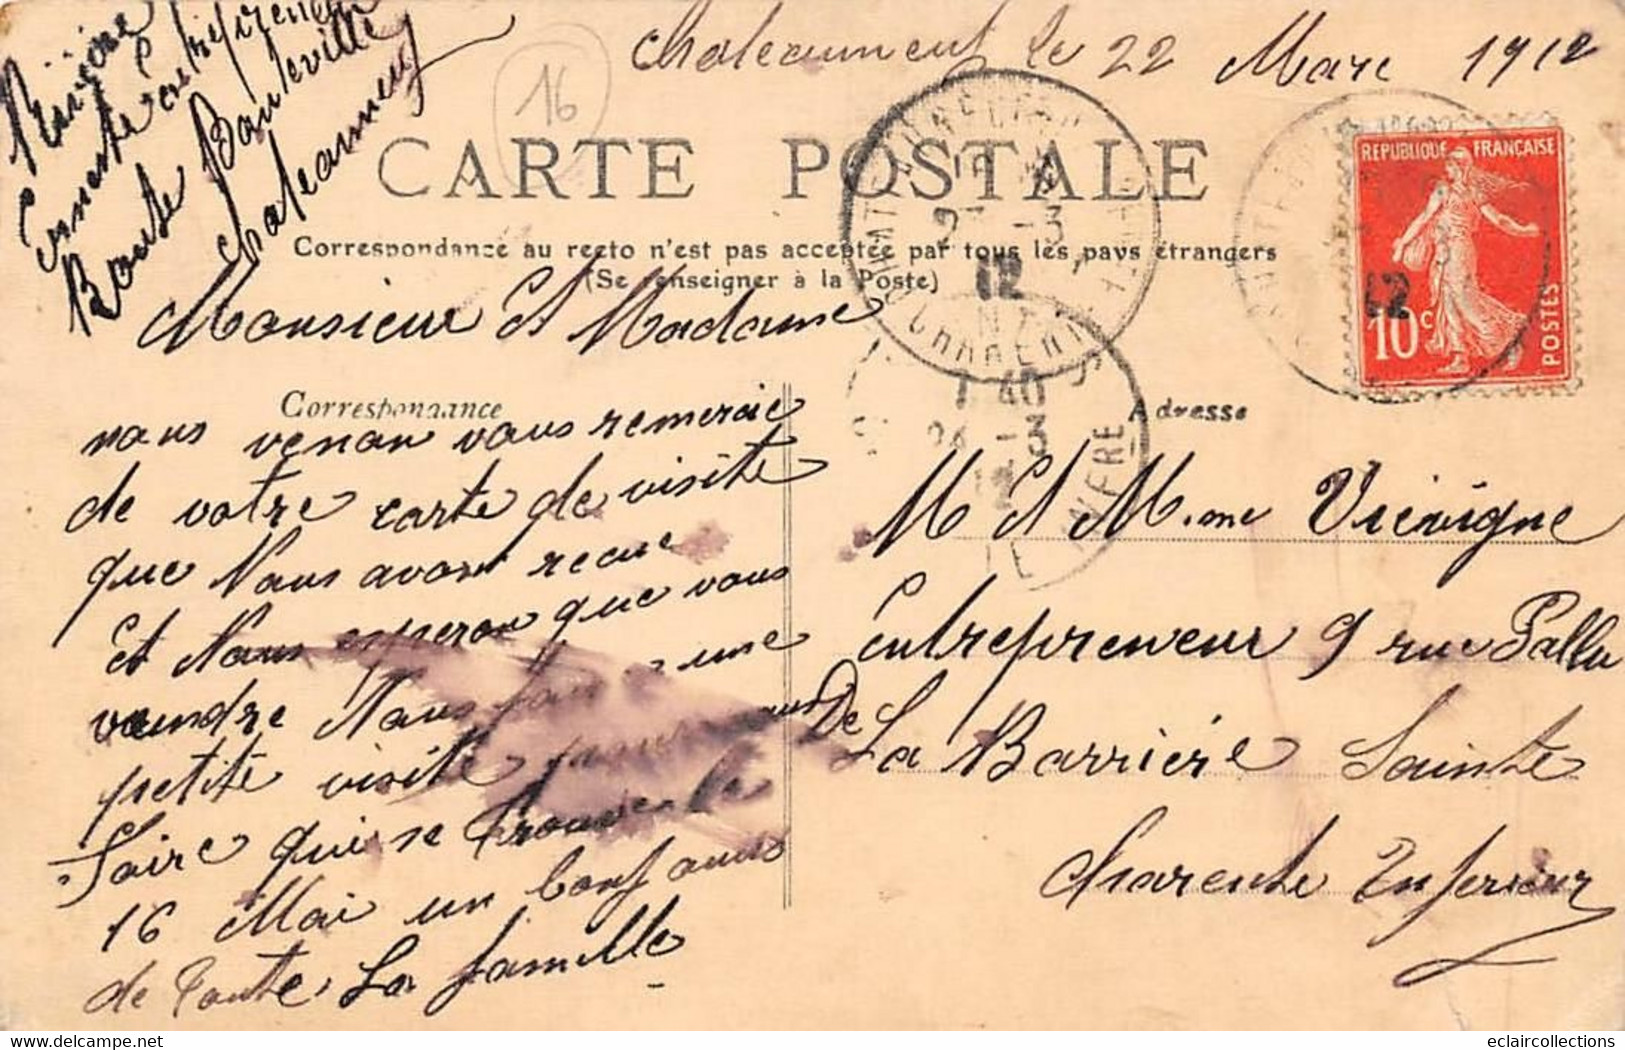 Rivière
Ernest entrepreneur
Route Bouteville
Chateauneuf
16
Chateauneuf le 22 Mars 1912
CARTE POSTALE
Correspondance au recto n'est pas acceptée par tous les pays étrangers
(Se renseigner à la Poste)
REPUBLIQUE FRANÇAISE
10c
POSTES
12
12
CHARENTE
1 40
LE HAVRE
Monsieur et Madame
Correspondance
nous venon vous remercie
de votre carte de visite
que Nous avont recue
Et Nous esperon que vous
vaundre Nous faire une
petite visite pour nous
foire qui se trouve le
16 Mai un bonj a vous
de toute La famille
Adresse
M et M.me Viewigne
Entrepreneur 9 rue Pallu
De La Barriére Sainte
Charente Inferieur
eclaircollections.com